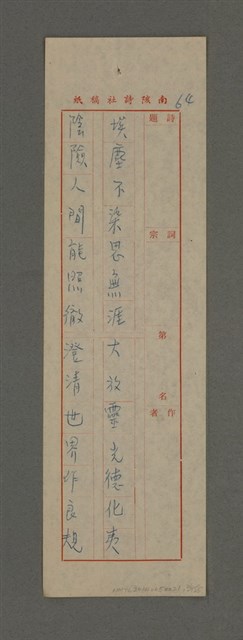 南陔詩社稿紙
64
詩題
詞宗
第 名
作者
埃塵不染思無涯大放靈光德化夷
陰險人間能照徹澄清世界作良規